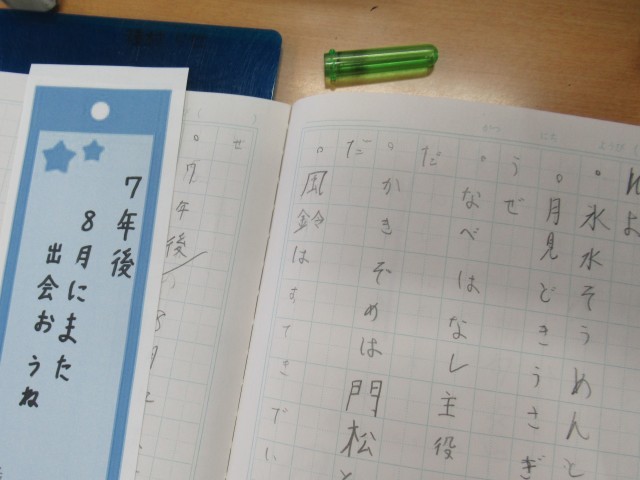 んよ
。氷水そうめんと
。月見どきうさぎ
うぜ
。なべはなし主役
だ
。かきぞめは門松と
だ
。風鈴はすてきでい
せ
。7年後
7年後
8月にまた
出会おうね